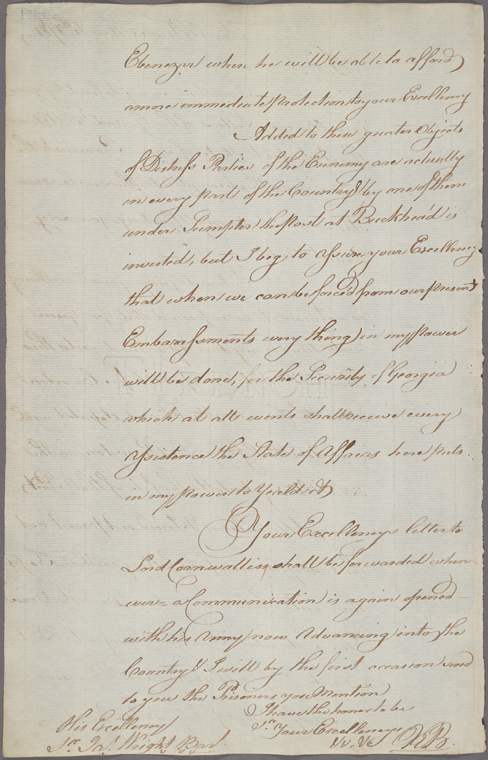 Ebenezer when he will be able to afford
a more immediate Protection to your Excellency
Added to these greater Objects
of Distress Parties of the Enemy are actually
in every part of the Country & by one of them
under Sumpter the Post at Buckhead is
invested, but I beg to Assure your Excellency
that when we can be forced from our present
Embarassments every thing in my power
will be done, for the Security of Georgia
which at all events shall receive every
Assistence the State of Affairs here puts
in my power to Yeild it
Your Excellencys letter to
Lord Cornwallis shall be forwarded when
ever a Communication is again opened
with his Army now Advancing into the
Country & I will by the first occasion send
to you the Prisoners you Mention
I have the honor to be
Sr. Your Excellencys
His Excellency &c &c
Sr. Jas. Wright Bart.